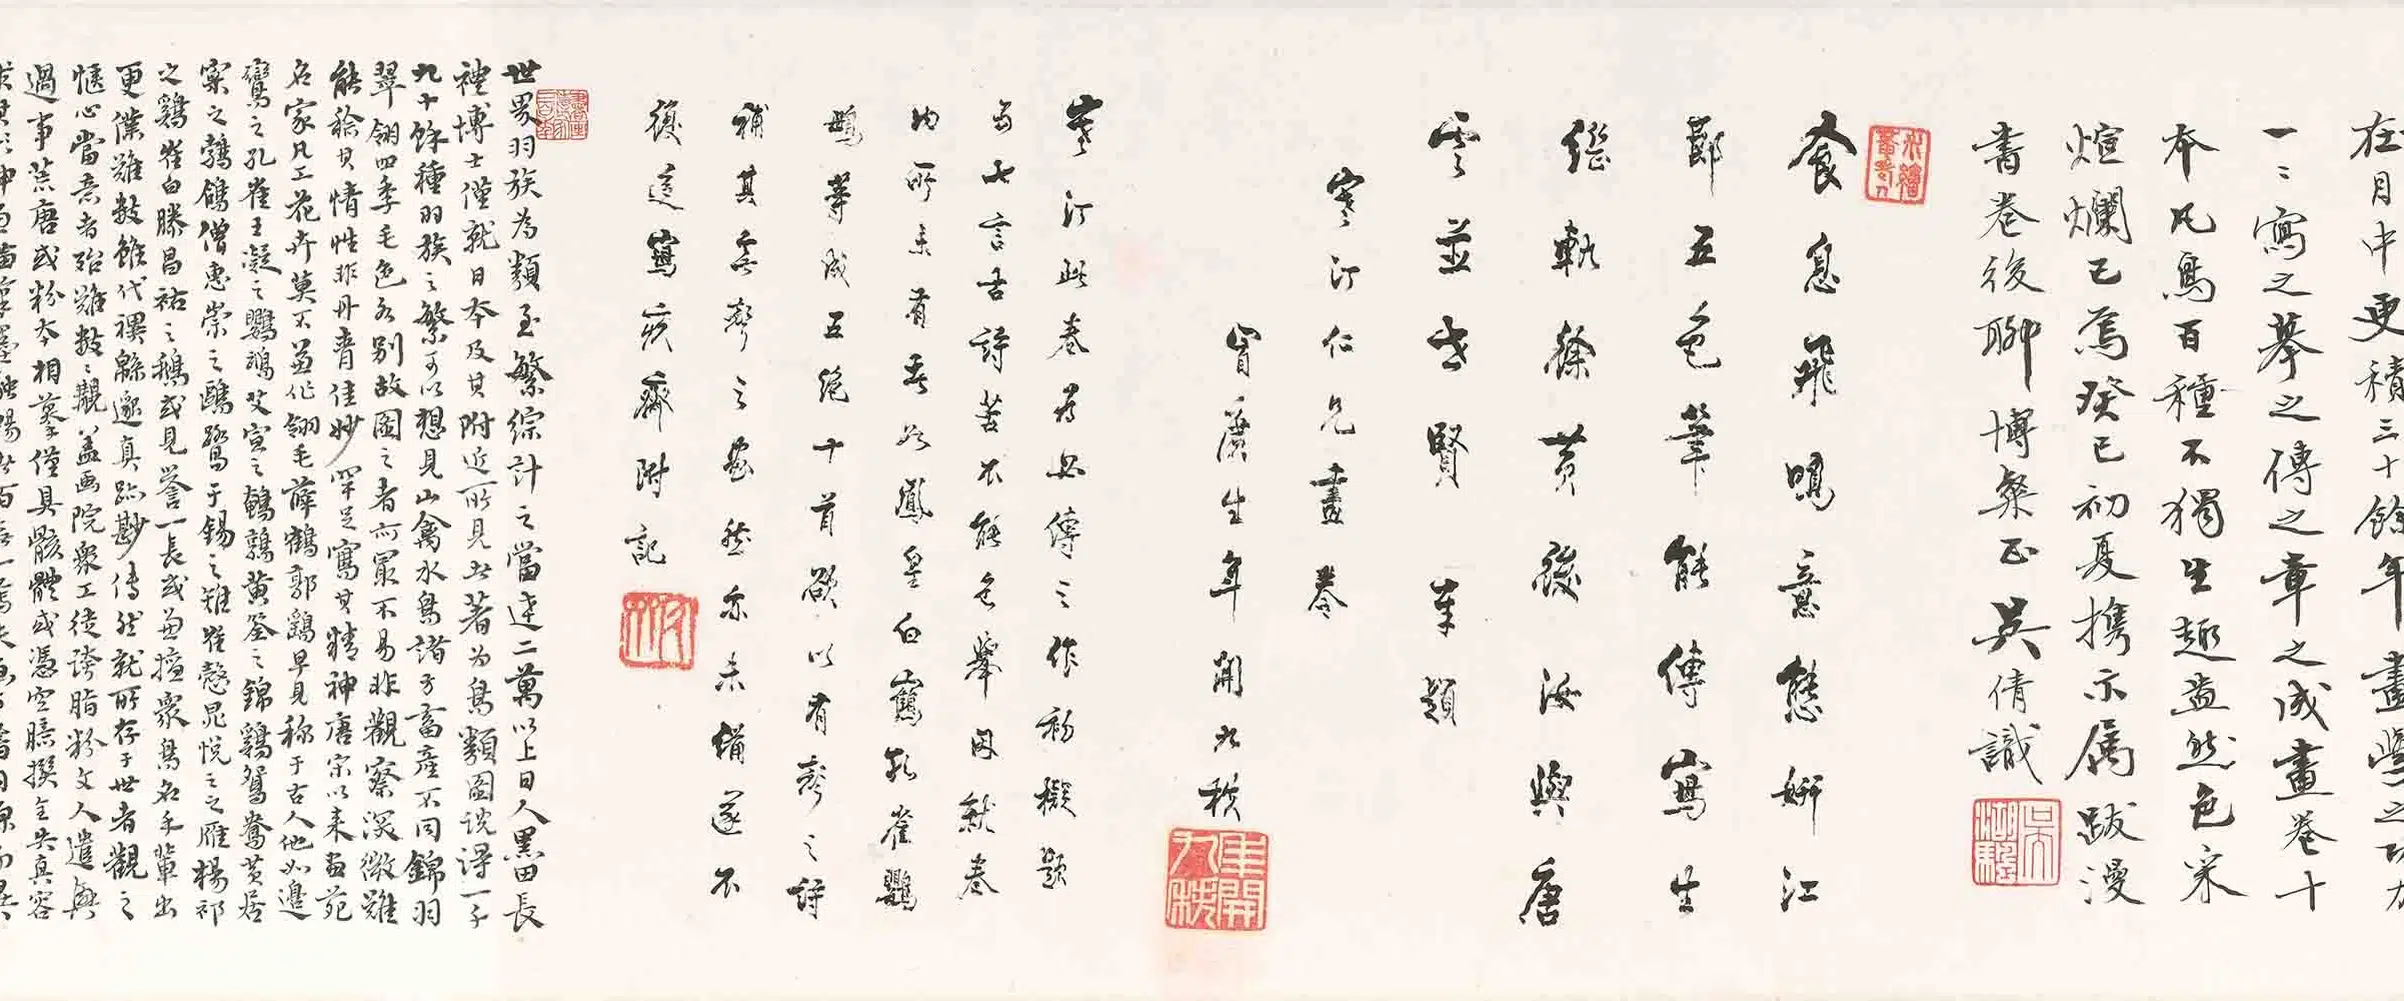 在月中更積三十餘年畫學之功力
一二寫之摹之傳之章之成畫卷十
本凡鳥百種不獨生趣盎然色采
煊爛已焉癸巳初夏攜示属跋漫
書卷後聊博粲正吳倩識
食息飛鳴意態妍江
郎五色筆能傳寫生
繼軌徐黃後海與唐
雲並世賢 草題
寒汀仁兄畫卷
年開九秩
寒汀此卷為必傳之作初擬題
七言古詩苦不能色舉因就卷
内所未有者如鳳皇白鷳孔雀鸚
鵡等成五絕十首欲以有聲之詩
補其無聲之畫然亦未備遂不
復這寫疚齋附記
世界羽族為類至繁綜計之當逹二萬以上日人黑田長
禮博士僅就日本及其附近所見者為鳥類圖說得一千
九十餘種羽族之繁可以想見山禽水鳥諸方畜產不同錦羽
翠翎四季毛色各別故圖之者亦最不易非觀察深微難
能稔其情性非丹青佳妙罕足寫其精神唐宋以来畫苑
名家凡工花卉莫不兼作翎毛薛鶴郭鷂早見称于古人他如邊
鸞之孔雀王凝之鸚鵡艾宣之鵪鶉黃筌之錦鷄鴛鴦黃居
寀之鶉鴿僧惠崇之鷗鷺于錫之雉崔慤晁悅之之雁楊祁
之鷄崔白滕昌祐之鵝或見誉一長或兼擅眾鳥名手輩出
更僕難数雖代禩緜邈真跡尠傳然就所存于世者觀之
愜心當意者殆難数數覯盖画院眾工徒誇脂粉文人遣興
過事荒唐或粉本相摹僅具骸體或憑空臆撰全失真容